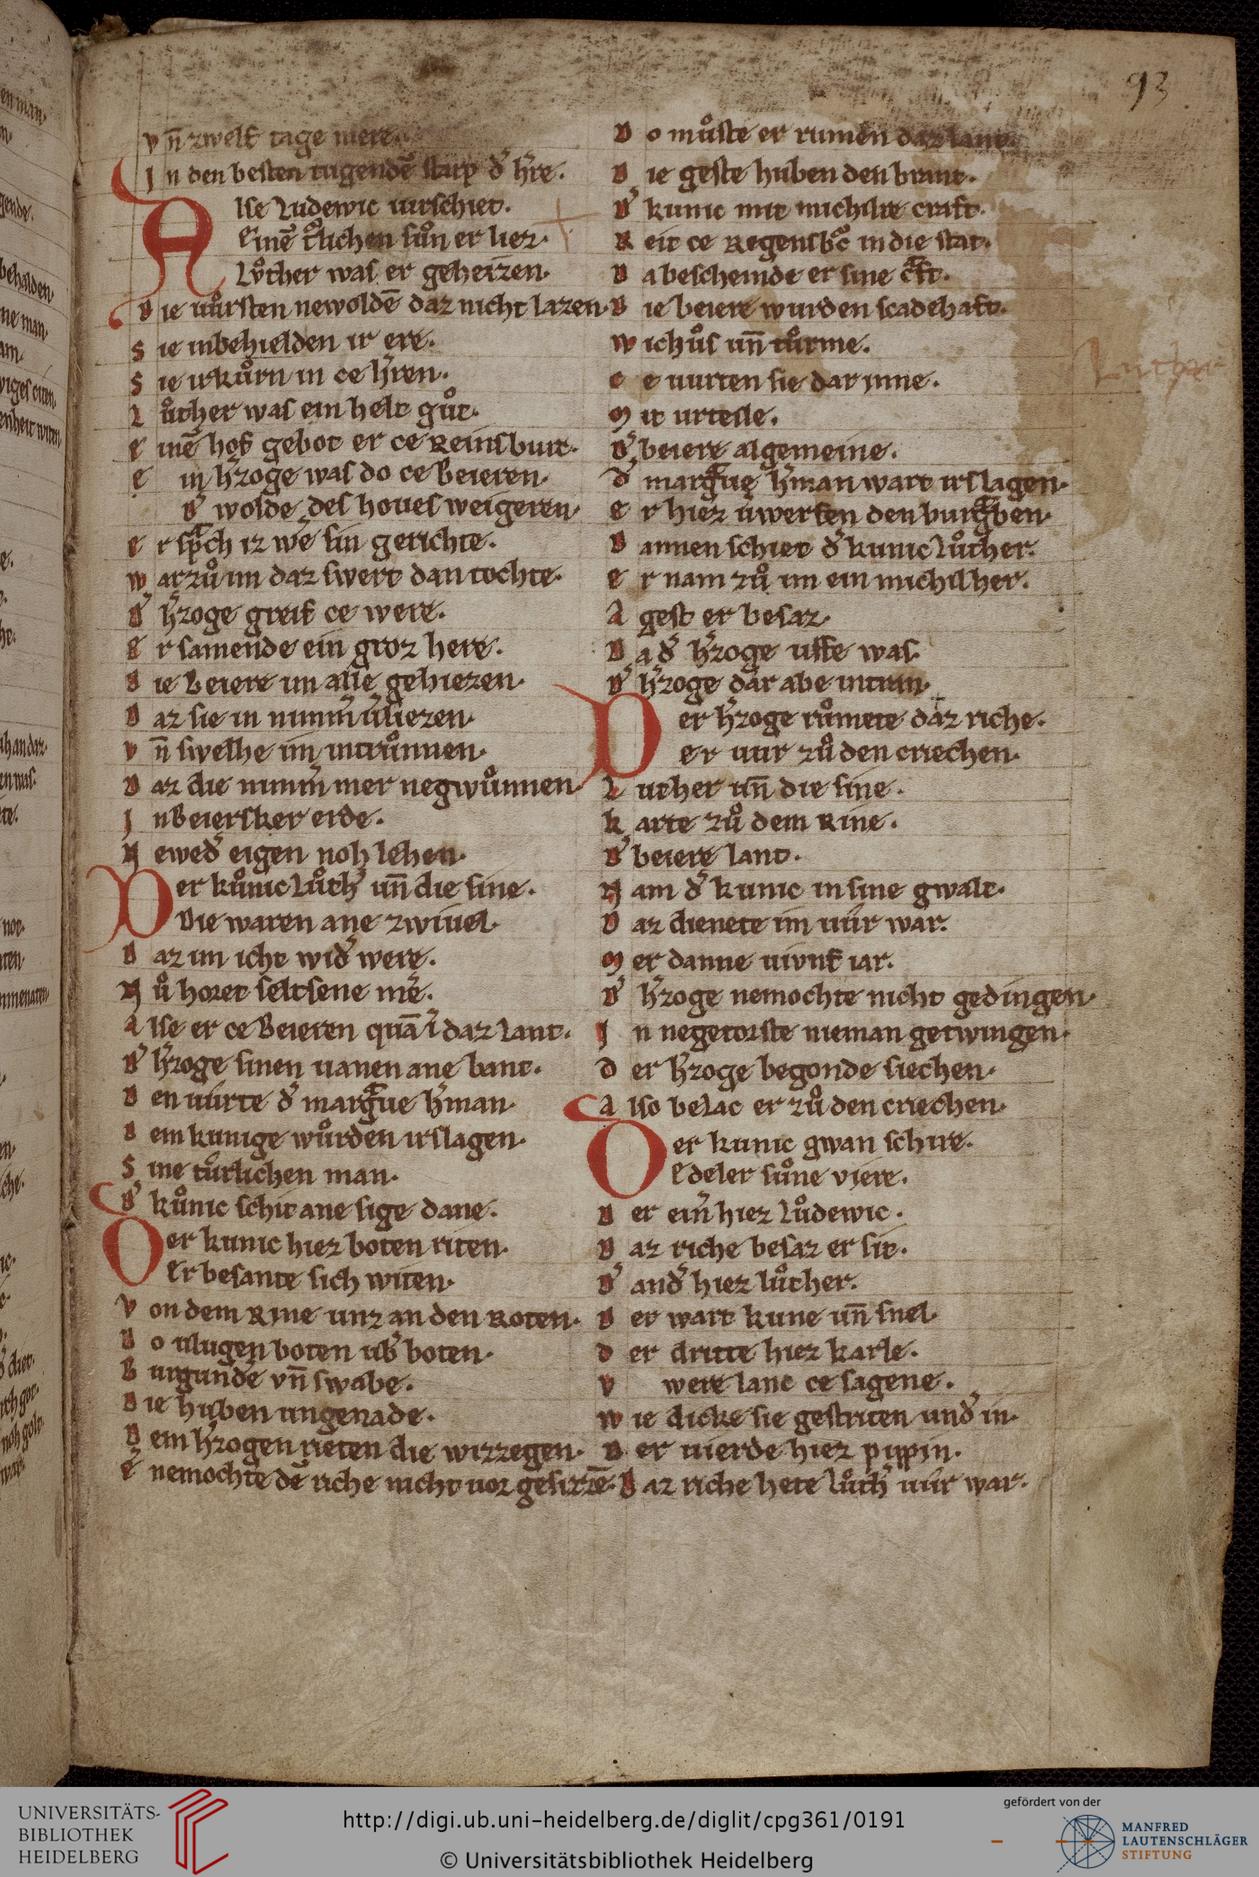 93
vn̄ zwelf tage mere.
In den besten tugendē starp d' h're.
Alse Ludewic uirschiet.
Einē t'lichen sůn er liez.
Lůther was er geheizen.
Die vůrsten newoldē daz nicht lazen.
Sie inbehielden ir ere.
Sie irkůrn in ce h'ren.
Lůther was ein helt gůt.
Einē hof gebot er ce Reinsburc.
Ein h'zoge was do ce Beieren.
D' wolde des houes weigeren.
Er sp̄ch iz we' sin gerichte.
Warzů im daz swert dan tochte.
D' h'zoge greif ce were.
Er samende ein groz here.
Die Beiere im alle gehiezen.
Daz sie in nimm' u'liezen.
Vn̄ swelhe im intrůnnen.
Daz die nimm' mer negwůnnen
In Beiersker erde.
Newed' eigen noh lehen.
Der kůnic Lůth' un̄ die sine.
Die waren ane zwiuel.
Daz im icht wid' were.
Nů horet seltsene me'.
Alse er ce Beieren quā ī daz lant.
D' h'zoge sinen uanen ane bant.
Den uůrte d' marg̃ue h'man.
Dem kunige wůrden irslagen.
Sine tůrlichen man.
D' kůnic schit ane sige dane.
Der kunic hiez boten riten.
Er besante sich witen.
Von dem Rine unz an den Roten.
Do ulugen boten ub' boten.
Burgunde vn̄ swabe.
Die huben ungenade.
Dem h'zogen rieten die wizzegen.
Er nemochte dē riche nicht uor gesizzē.
Do můste er rumen daz lant.
Die geste huben den brant.
D' kunic mit michilre craft.
Reit ce Regensb'c in die stat.
Da bescheinde er sine c̃ft.
Die beiere wurden scadehaft.
Wichůs un̄ tůrme.
Ce uurten sie dar inne.
Mit urteile.
D' beiere algemeine.
D' marg̃ue h'man wart irslagen.
Er hiez uwerfen den burg̃ben.
Dannen schiet d' kunic Lůther.
Er nam zů im ein michil her.
Agest er besaz.
Da d' h'zoge uffe was.
D' h'zoge dar abe intran.
Der h'zoge růmete daz riche.
Er uur zů den criechen.
Luther un̄ die sine.
Karte zů dem Rine.
D' beiere lant.
Nam d' kunic in sine gwalt.
Daz dienete im uůr war.
Mer danne uivnf iar.
D' h'zoge nemochte nicht gedingen.
In negetorste nieman getwingen.
Der h'zoge begonde siechen.
Also belac er zů den criechen.
Der kunic gwan schire.
Edeler sůne viere.
Der ein' hiez Lůdewic.
Daz riche besaz er sit.
D' and' hiez lůther.
Der wart kune un̄ snel.
Der dritte hiez karle.
V were lanc ce sagene.
Wie dicke sie gestriten und' in.
Der uierde hiez pippin.
Daz riche hete lůth' uůr war.
Luther
UNIVERSITÄTS-
BIBLIOTHEK
HEIDELBERG
http://digi.ub.uni-heidelberg.de/diglit/cpg361/0191
© Universitätsbibliothek Heidelberg
gefördert von der
MANFRED
LAUTENSCHLÄGER
STIFTUNG